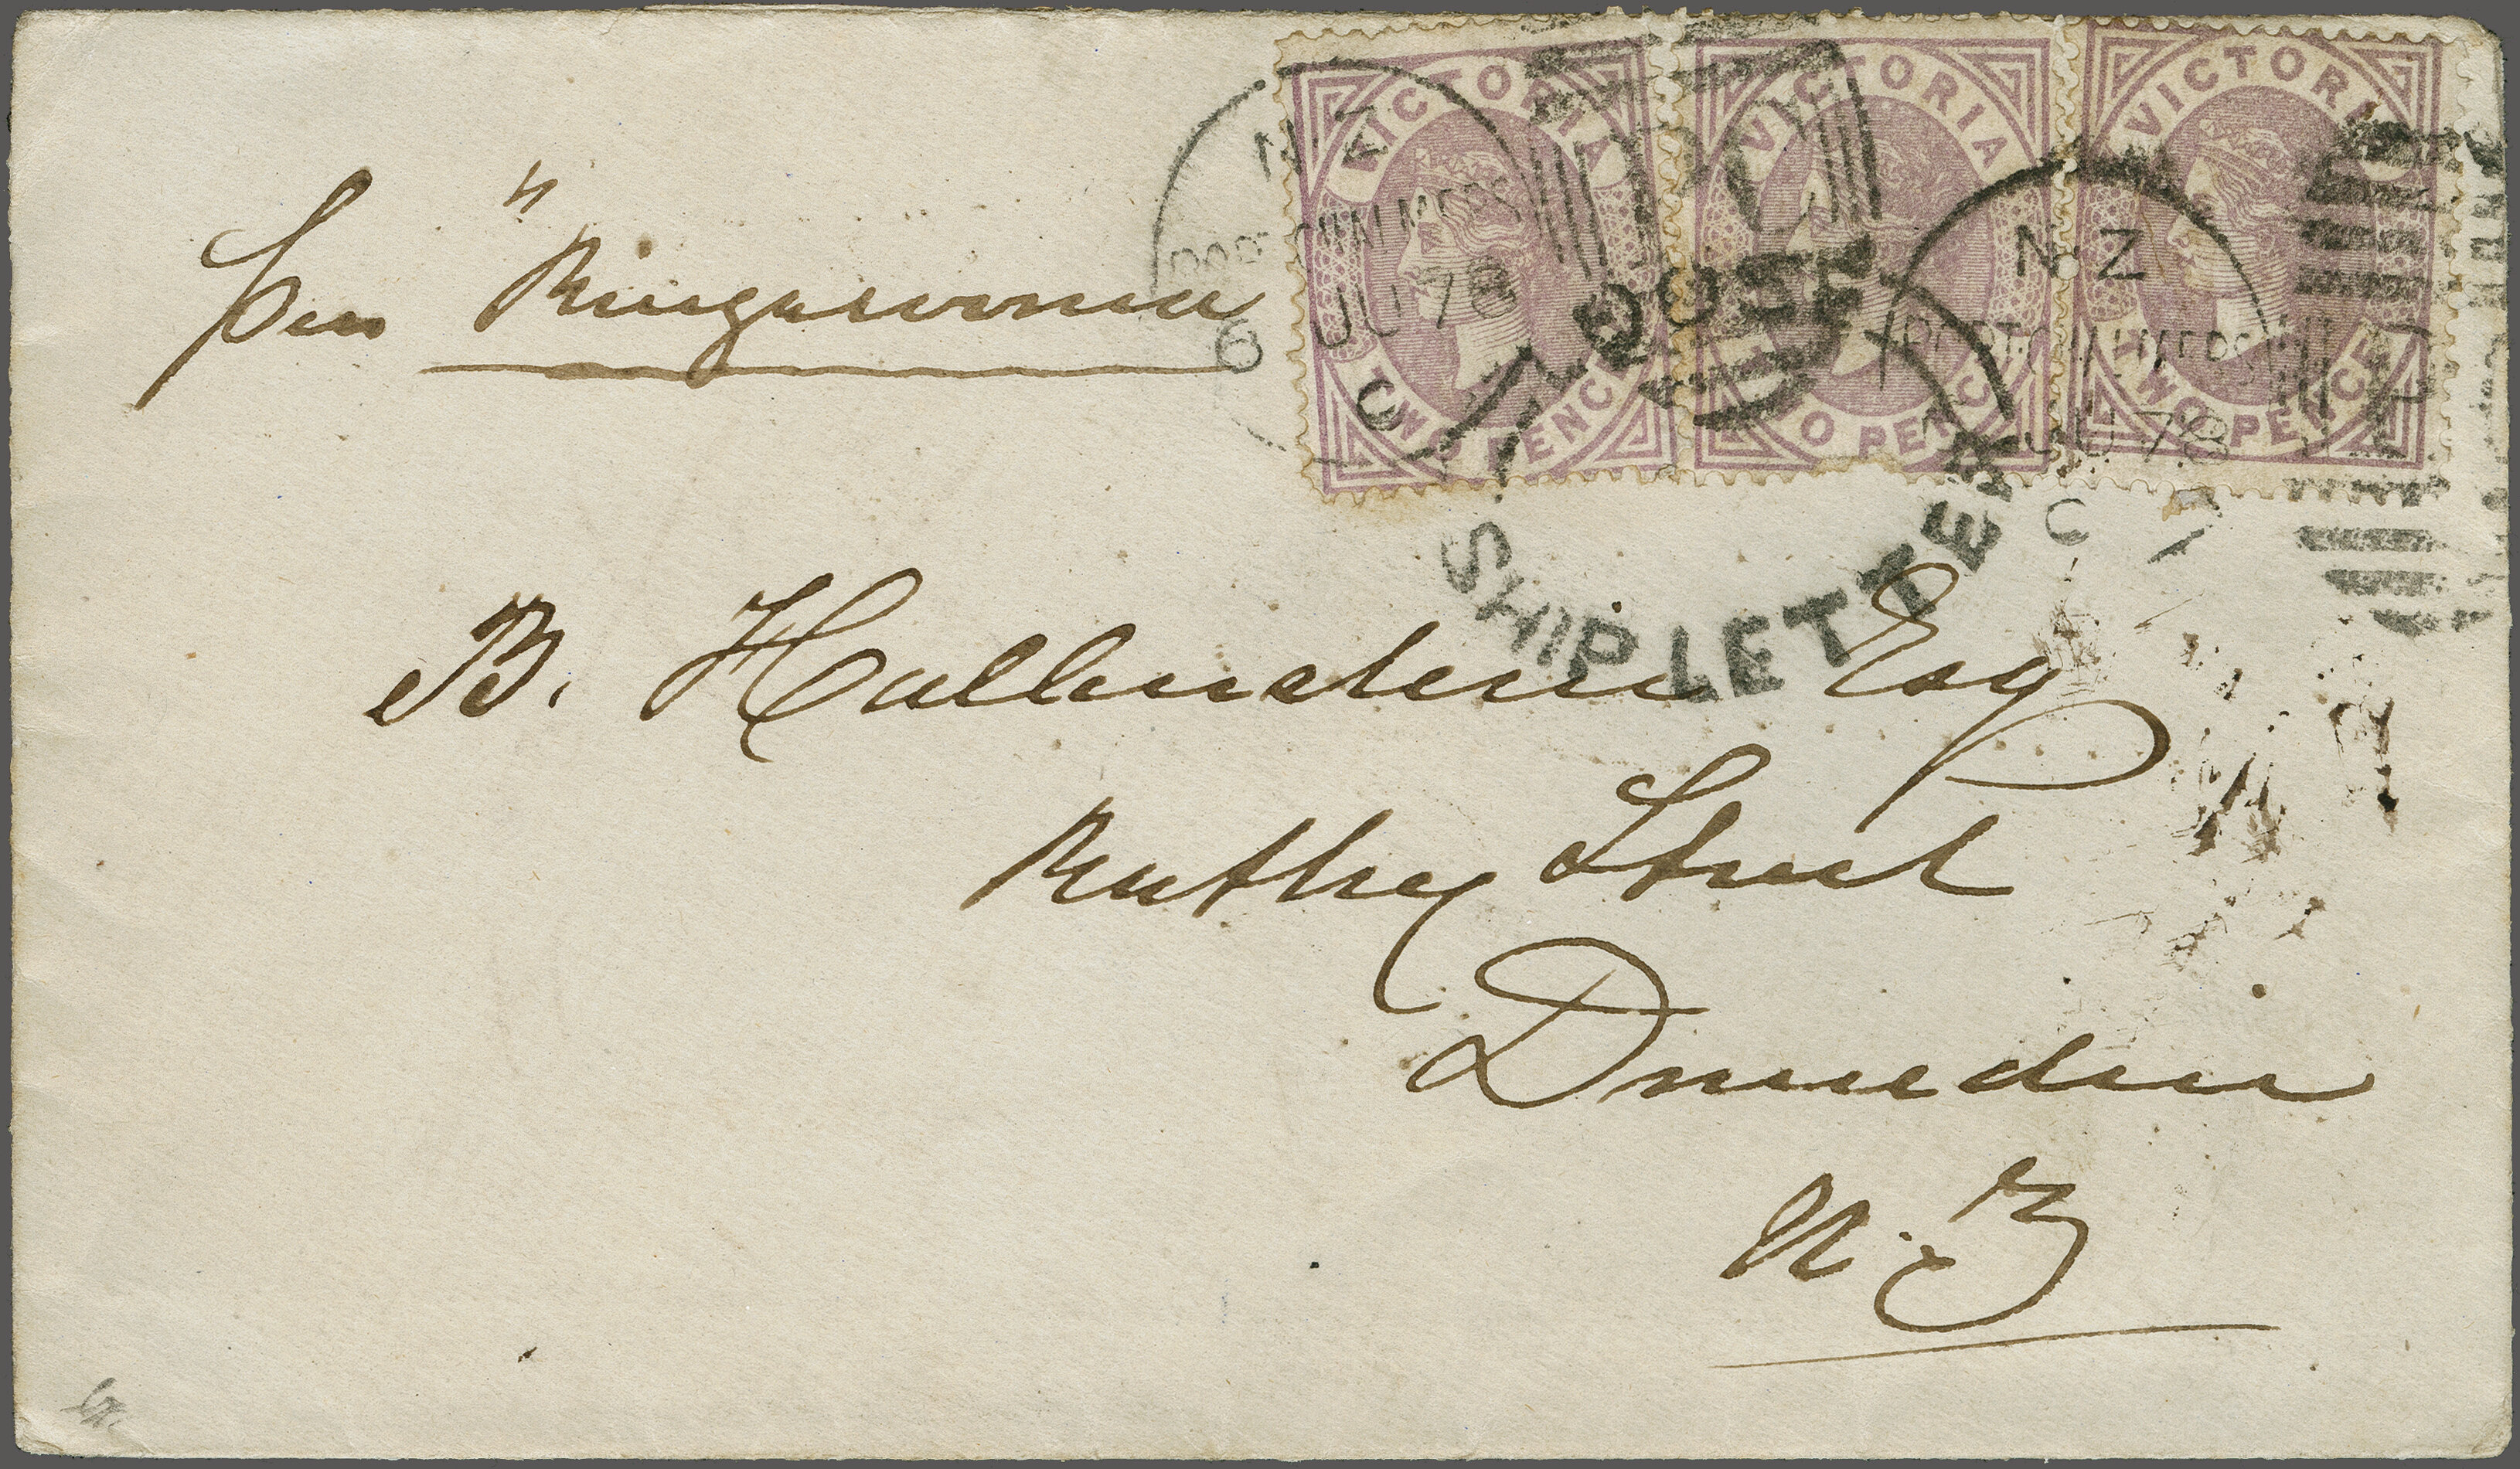 VICTORIA TWO PENCE
VICTORIA TWO PENCE
VICTORIA TWO PENCE
N.Z
PORT CHALMERS
6 JU 78
LOOSE
SHIP LETTER
N.Z
PORT CHALMERS
JU 78
per "Ringarooma"
B. Hallenstein Esq
Rattray Street
Dunedin
N.Z